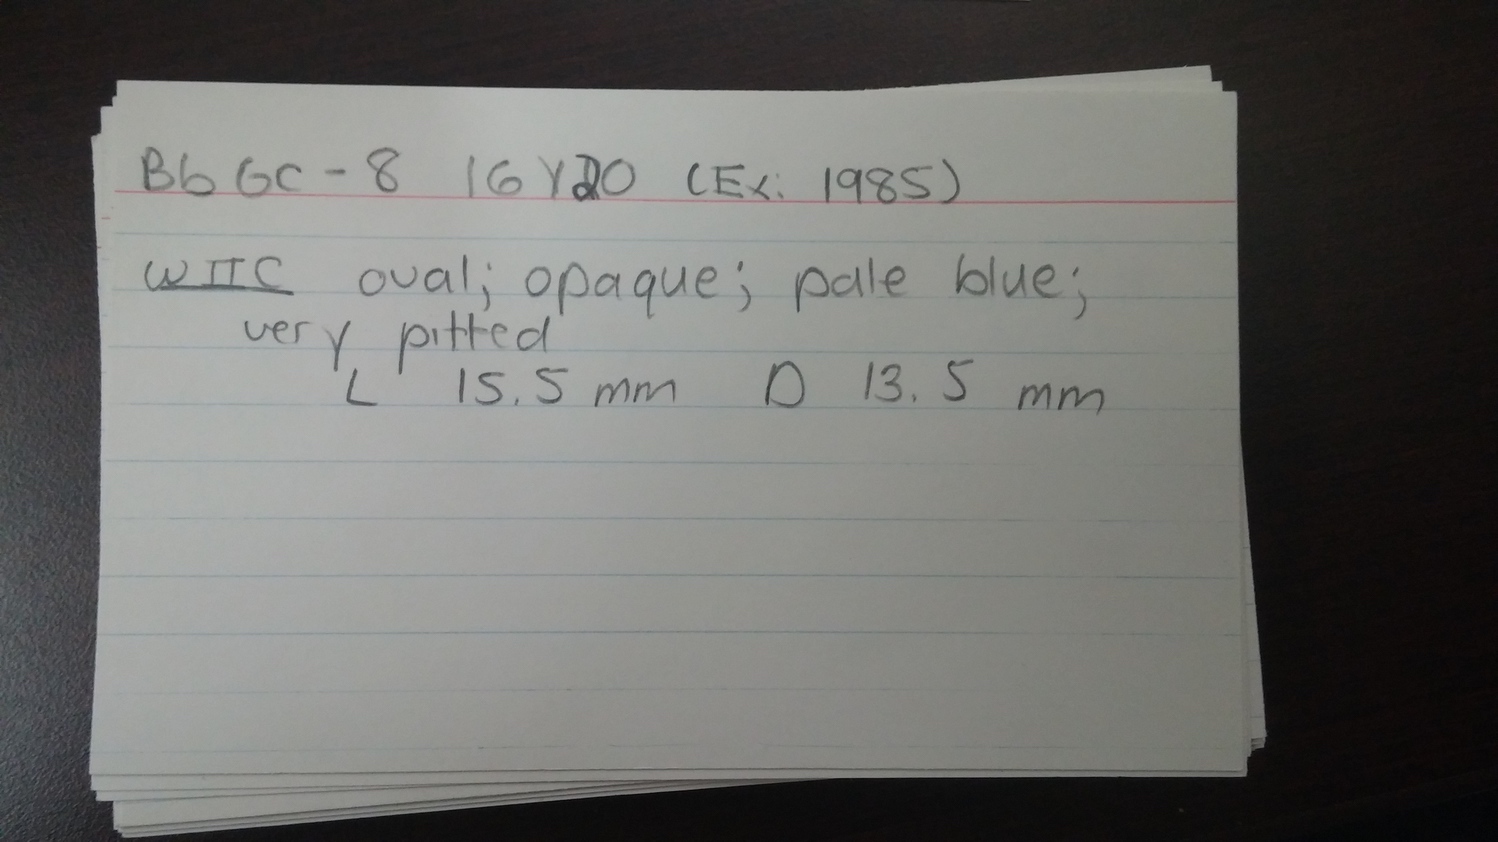 BbGc-8 16Y20 (Ex: 1985)
WIIC oval; opaque; pale blue;
very pitted
L 15.5 mm D 13.5 mm